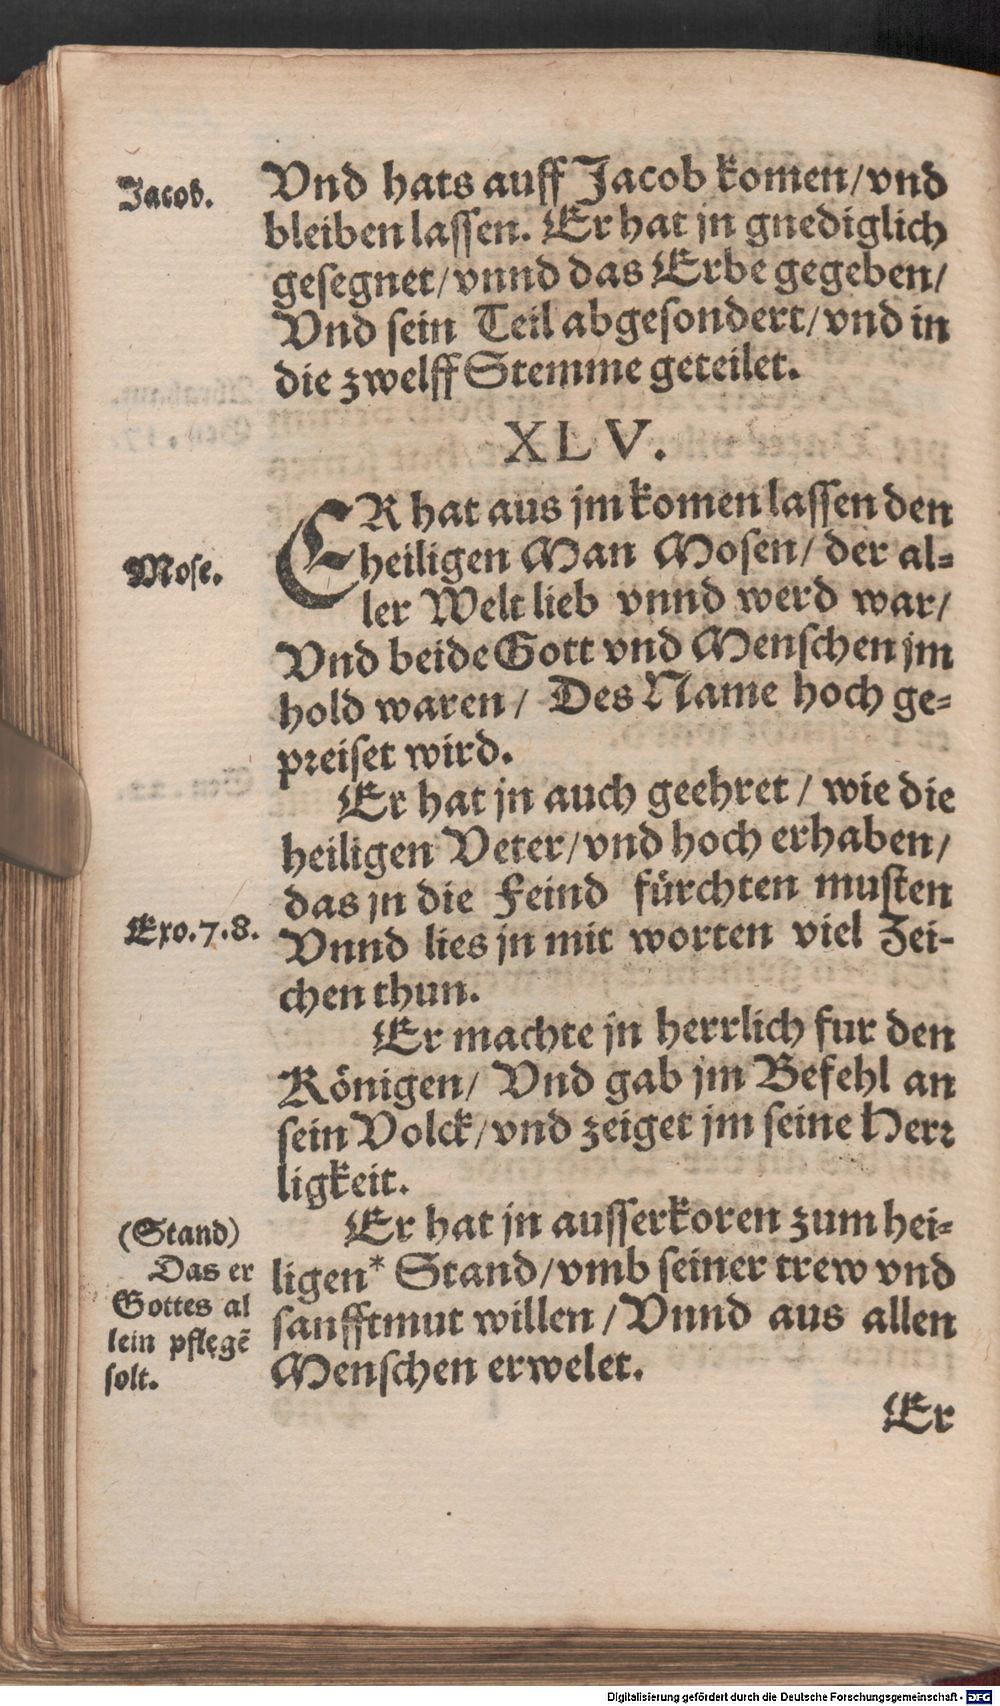 Jacob.
Vnd hats auff Jacob komen/vnd
bleiben lassen. Er hat jn gnediglich
gesegnet/vnnd das Erbe gegeben/
Vnd sein Teil abgesondert/vnd in
die zwelff Stemme geteilet.
XLV.
ER hat aus jm komen lassen den
Mose.
heiligen Man Mosen/ der al=
ler Welt lieb vnnd werd war/
Vnd beide Gott vnd Menschen jm
hold waren/ Des Name hoch ge=
preiset wird.
Er hat jn auch geehret/ wie die
heiligen Veter/vnd hoch erhaben/
das jn die Feind fürchten musten
Exo.7.8.
Vnnd lies jn mit worten viel Zei-
chen thun.
Er machte jn herrlich fur den
Königen/ Vnd gab jm Befehl an
sein Volck/vnd zeiget jm seine Herr
ligkeit.
Er hat jn ausserkoren zum hei=
ligen* Stand/vmb seiner trew vnd
sanfftmut willen/Vnnd aus allen
Menschen erwelet.
(Stand)
Das er
Gottes al
lein pflegē
solt.
Er
Digitalisierung gefördert durch die Deutsche Forschungsgemeinschaft - DFG